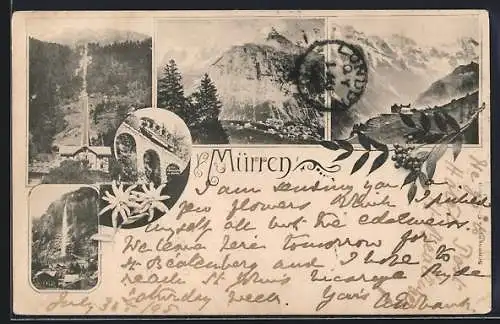 LONDON
Mürren
I am sending you a
few flowers which I picked
myself all but the edelweiss.
We leave here tomorrow for
St Beatenberg and I hope to
reach St John's Vicarage Ryde
Saturday week. Yours
July 30 95